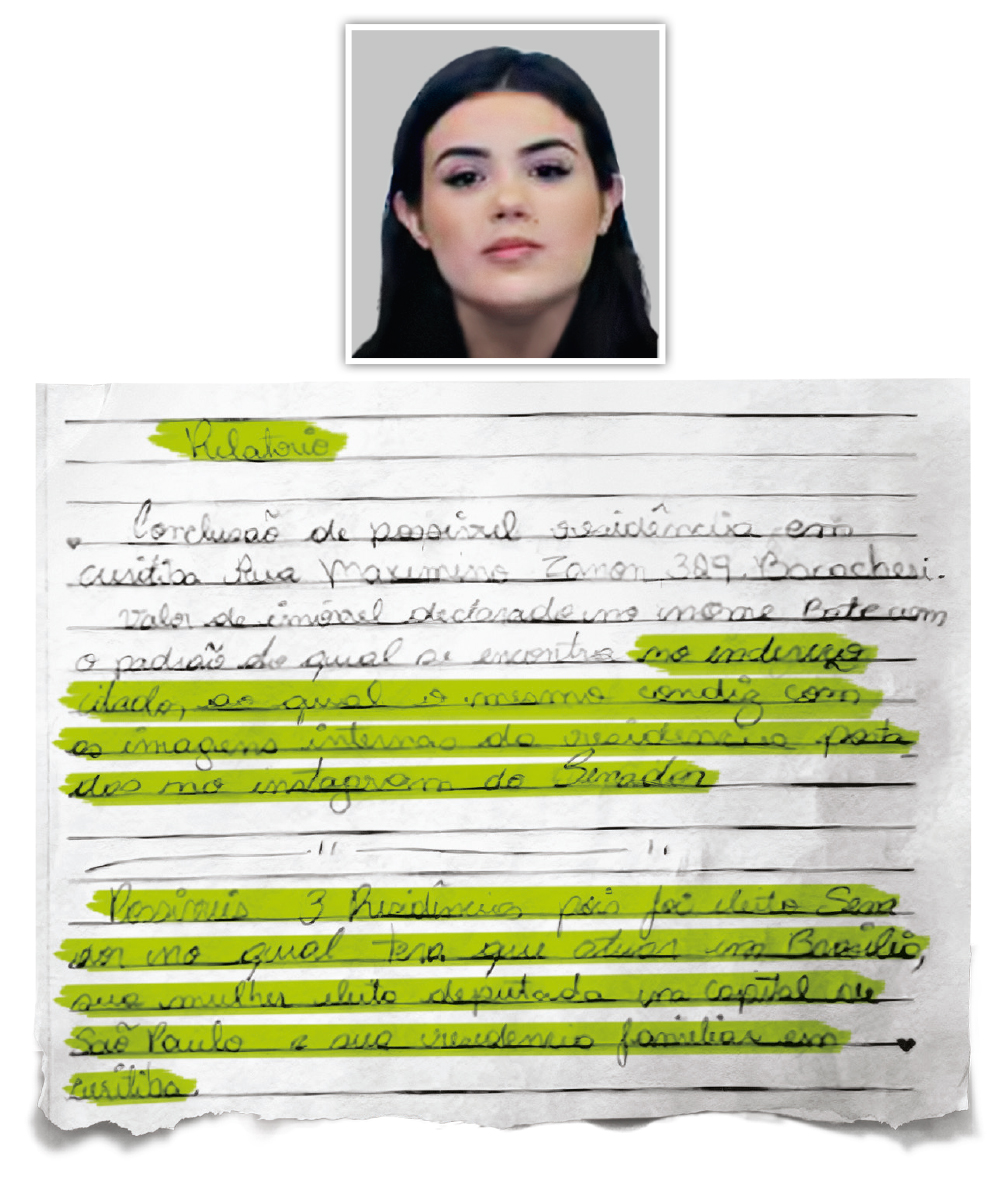 Relatorio
Conclusaõ de possivel residência em
Curitiba Rua Maximino Zanon 329. Baracheri.
Valor de imóvel declarado no nome Bate com
o padraõ do qual se encontra no indereço
citado, ao qual o mesmo condiz com
as imagens internas da residencia posta
das no instagram do Senador
Possiveis 3 Residências pois foi eleito Sena
dor no qual tera que atuar em Brasilia,
sua mulher eleita deputada na capital de
São Paulo e sua residencia familiar em
curitiba.